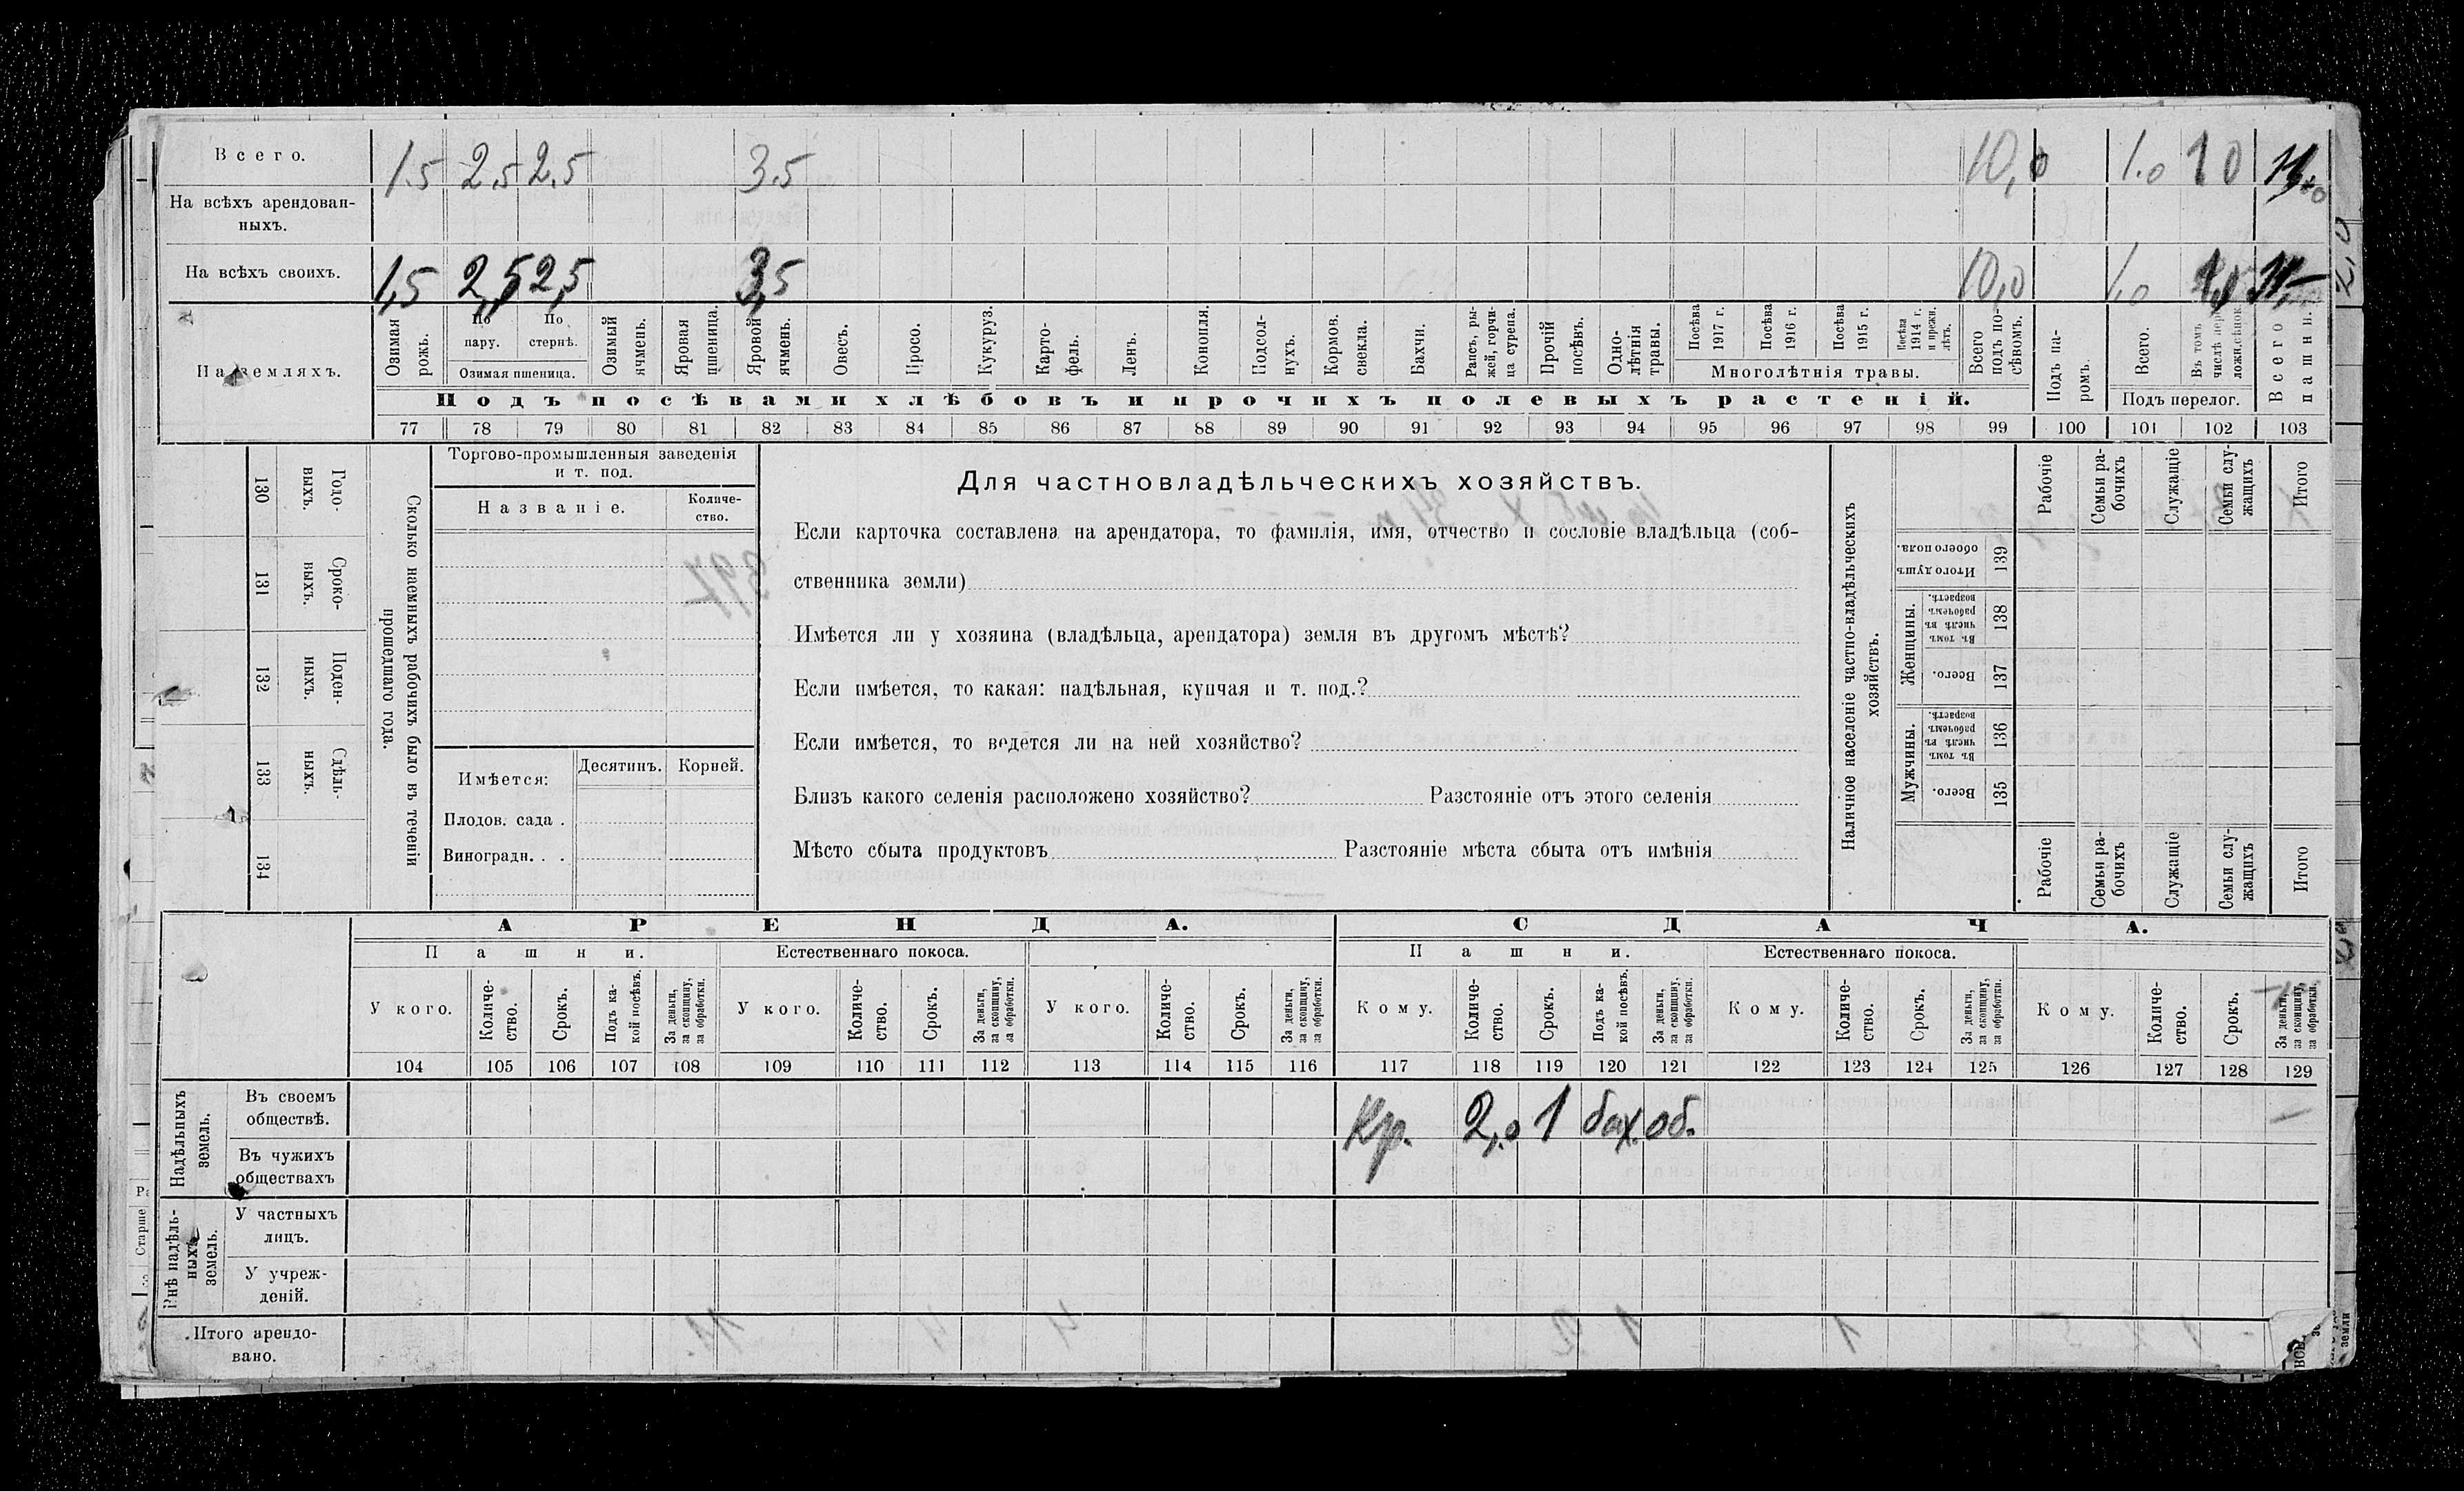 Всего. 1.5 2.5 2.5 3.5 10,0 1.0 10
На всѣхъ арендован-
ныхъ.
На всѣхъ своихъ. 1,5 2,5 2,5 3,5 10,0 1,0
На земляхъ.
Озимая рожь.
По пару.
По стернѣ.
Озимая пшеница.
Озимый ячмень.
Яровая пшеница.
Яровой ячмень.
Овесъ.
Просо.
Кукуруз.
Карто-
фель.
Ленъ.
Конопля.
Подсол-
нухъ.
Кормов. свекла.
Бахчи.
Рапсъ, ры-
жей, горчи-
ца сурепа.
Прочій посѣвъ.
Одно-
лѣтнія травы.
Посѣва 1917 г.
Посѣва 1916 г.
Посѣва 1915 г.
Посѣва 1914 г. и прежн. лѣтъ.
Многолѣтнія травы.
Всего подъ по-
сѣвомъ.
Подъ посѣвами хлѣбовъ и прочихъ полевыхъ растеній.
Подъ па-
ромъ.
Всего.
Въ томъ числѣ пере-
ложн.сѣнок.
Подъ перелог.
Всего пашни.
77 78 79 80 81 82 83 84 85 86 87 88 89 90 91 92 93 94 95 96 97 98 99 100 101 102 103
130 131 132 133 134
Годо-
выхъ.
Сроко-
ныхъ.
Поден-
ныхъ.
Сдѣль-
ныхъ.
Сколько наемныхъ рабочихъ было въ теченіи
прошедшаго года.
Торгово-промышленныя заведенія
и т. под.
Названіе.
Количе-
ство.
Имѣется:
Десятинъ. Корней.
Плодов. сада .
Виноградн. . .
Для частновладѣльческихъ хозяйствъ.
Если карточка составлена на арендатора, то фамилія, имя, отчество и сословіе владѣльца (соб-
ственника земли)
Имѣется ли у хозяина (владѣльца, арендатора) земля въ другомъ мѣстѣ?
Если имѣется, то какая: надѣльная, купчая и т. под.?
Если имѣется, то ведется ли на ней хозяйство?
Близъ какого селенія расположено хозяйство? Разстояніе отъ этого селенія
Мѣсто сбыта продуктовъ Разстояніе мѣста сбыта отъ имѣнія
Наличное населеніе частно-владѣльческихъ
хозяйствъ.
Рабочіе
Семьи ра-
бочихъ
Служащіе
Семьи слу-
жащихъ
Итого
Итого душъ обоего пола. 139
Женщины.
Въ томъ числѣ въ рабочемъ возрастѣ. 138
Всего. 137
Мужчины.
Въ томъ числѣ въ рабочемъ возрастѣ. 136
Всего. 135
Рабочіе
Семьи ра-
бочихъ
Служащіе
Семьи слу-
жащихъ
Итого
АРЕНДА. СДАЧА.
Пашни. Естественнаго покоса. Пашни. Естественнаго покоса.
У кого.
Количе-
ство.
Срокъ.
Подъ ка-
кой посѣвъ.
За деньги, за скопщину, за обработки.
У кого.
Количе-
ство.
Срокъ.
За деньги, за скопщину, за обработки.
У кого.
Количе-
ство.
Срокъ.
За деньги, за скопщину, за обработки.
Кому.
Количе-
ство.
Срокъ.
Подъ ка-
кой посѣвъ.
За деньги, за скопщину, за обработки.
Кому.
Количе-
ство.
Срокъ.
За деньги, за скопщину, за обработки.
Кому.
Количе-
ство.
Срокъ.
За деньги, за скопщину, за обработки.
104 105 106 107 108 109 110 111 112 113 114 115 116 117 118 119 120 121 122 123 124 125 126 127 128 129
Надѣльныхъ земель.
Въ своемъ
обществѣ. Кр. 2,0 1 бах. об.
Въ чужихъ
обществахъ
Внѣ надѣль-
ныхъ земель.
У частныхъ
лицъ.
У учреж-
деній.
Итого арендо-
вано.
Старше
земли